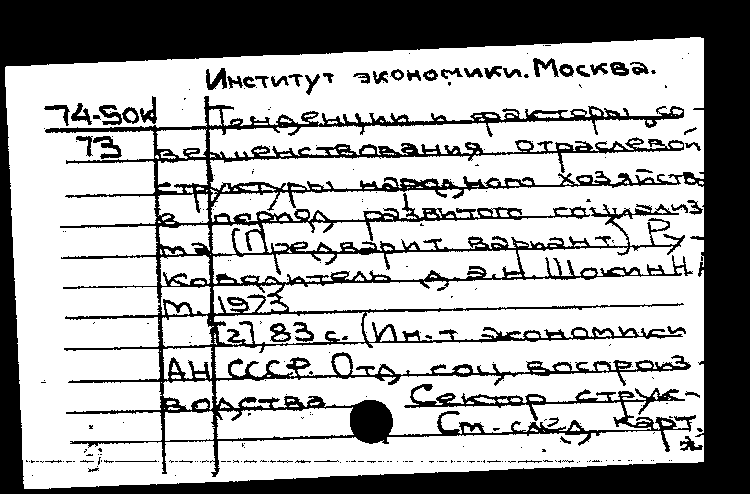 Институт экономики. Москва.
74-50к Тенденции и факторы со-
73 вершенствования отраслевой
структуры народного хозяйства
в период развитого социализ-
ма (Предварит. вариант). Ру-
ководитель д.э.н. Шокин Н.А
М. 1973
[2], 83 с. (Ин-т экономики
АН СССР. Отд. соц. воспроиз-
водства Сектор струк-
См. след. карт.